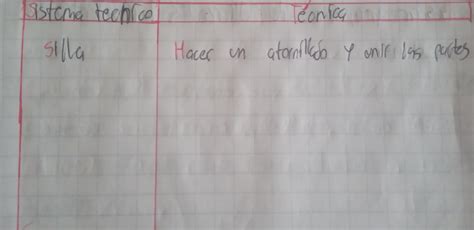 Sistema tecnico Tecnica
Silla Hacer un atornillado y unir las partes